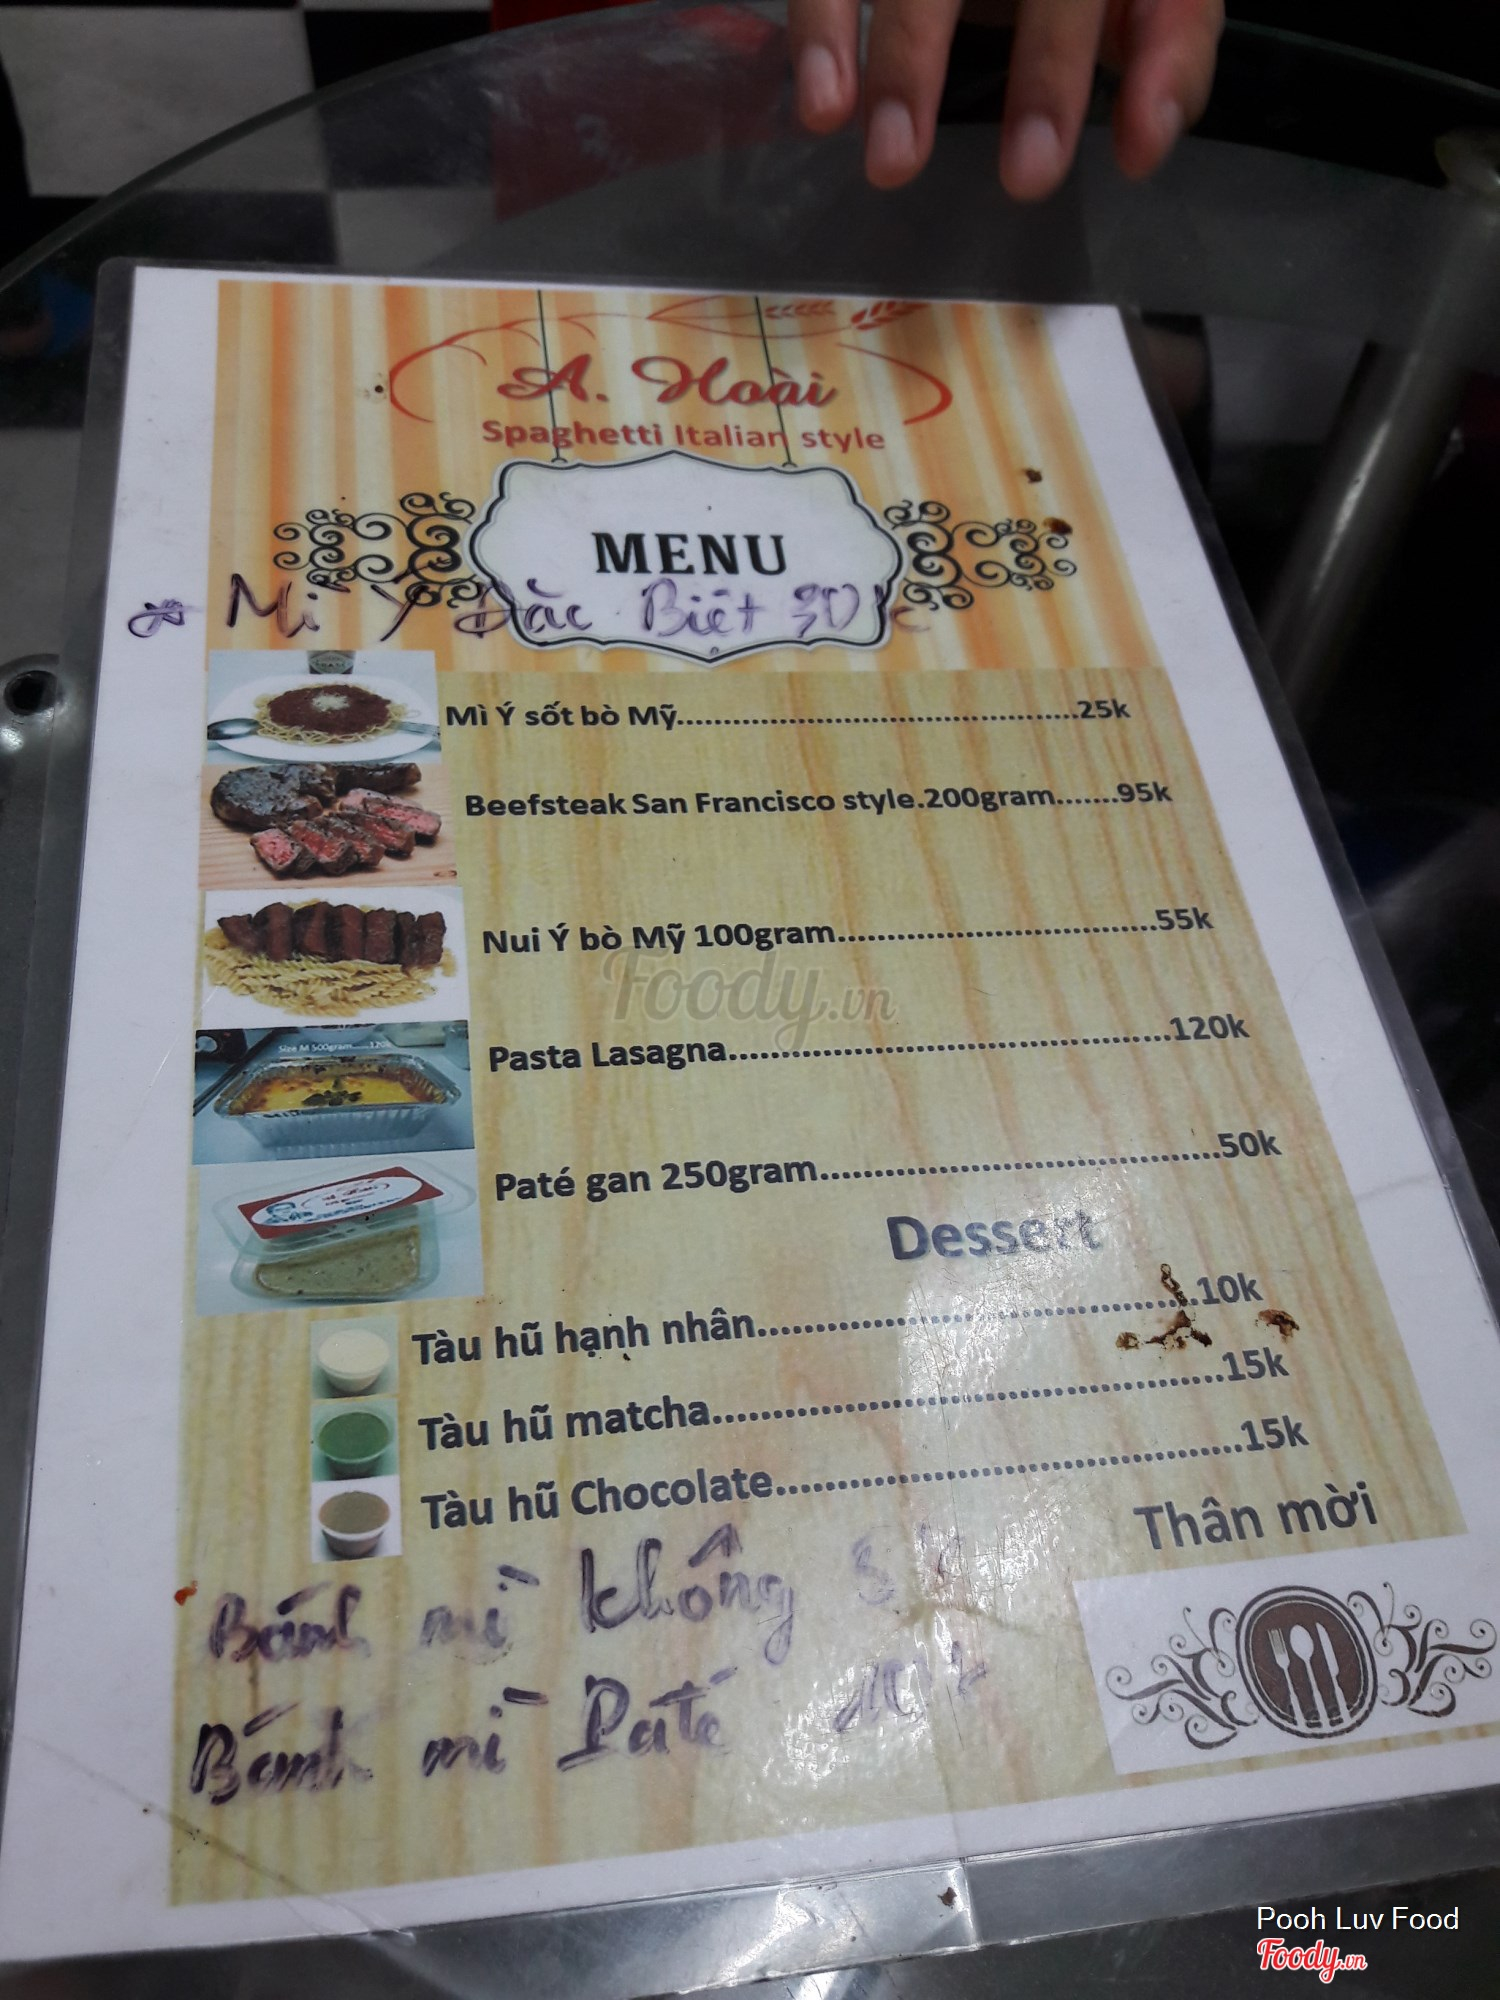 A. Hoài
Spaghetti Italian style
MENU
Mì Ý Đặc Biệt 30k
Mì Ý sốt bò Mỹ........................................25k
Beefsteak San Francisco style.200gram.......95k
Nui Ý bò Mỹ 100gram................................55k
Size M 500gram......120k
Pasta Lasagna............................................120k
Paté gan 250gram........................................50k
Dessert
Tàu hũ hạnh nhân.....................................10k
Tàu hũ matcha..........................................15k
Tàu hũ Chocolate.......................................15k
Thân mời
Bánh mì không
Bánh mì Paté 10k
Foody.vn
Pooh Luv Food
Foody.vn